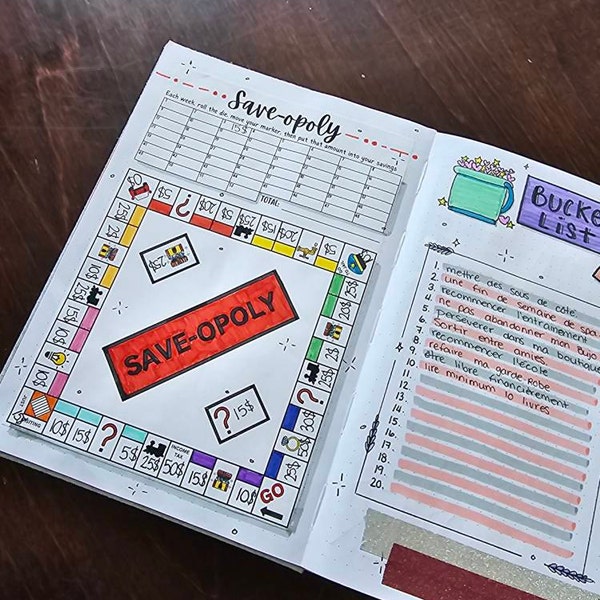 Save-opoly
Each week, roll the die, move your marker, then put that amount into your savings
15$
TOTAL:
5$
?
5$
25$
15$
20$
25$
2$
10$
10$
15$
10$
25$
SAVE-OPOLY
? 15$
20$
25$
2$
30$
50$
25$
VISITING
10$
15$
?
5$
25$
INCOME TAX
50$
15$
10$
GO
BUCKE
LIST
1. mettre des sous de côté
2. une fin de semaine de spa
3. recommencer l'entraînement
4. ne pas abandonner mon bujo
5. Perseverer dans ma boutique
6. Sortir entre amies.
7. recommencer l'école
8. refaire ma garde-robe
9. être libre financièrement
10. lire minimum 10 livres
11.
12.
13.
14.
15.
16.
17.
18.
19.
20.